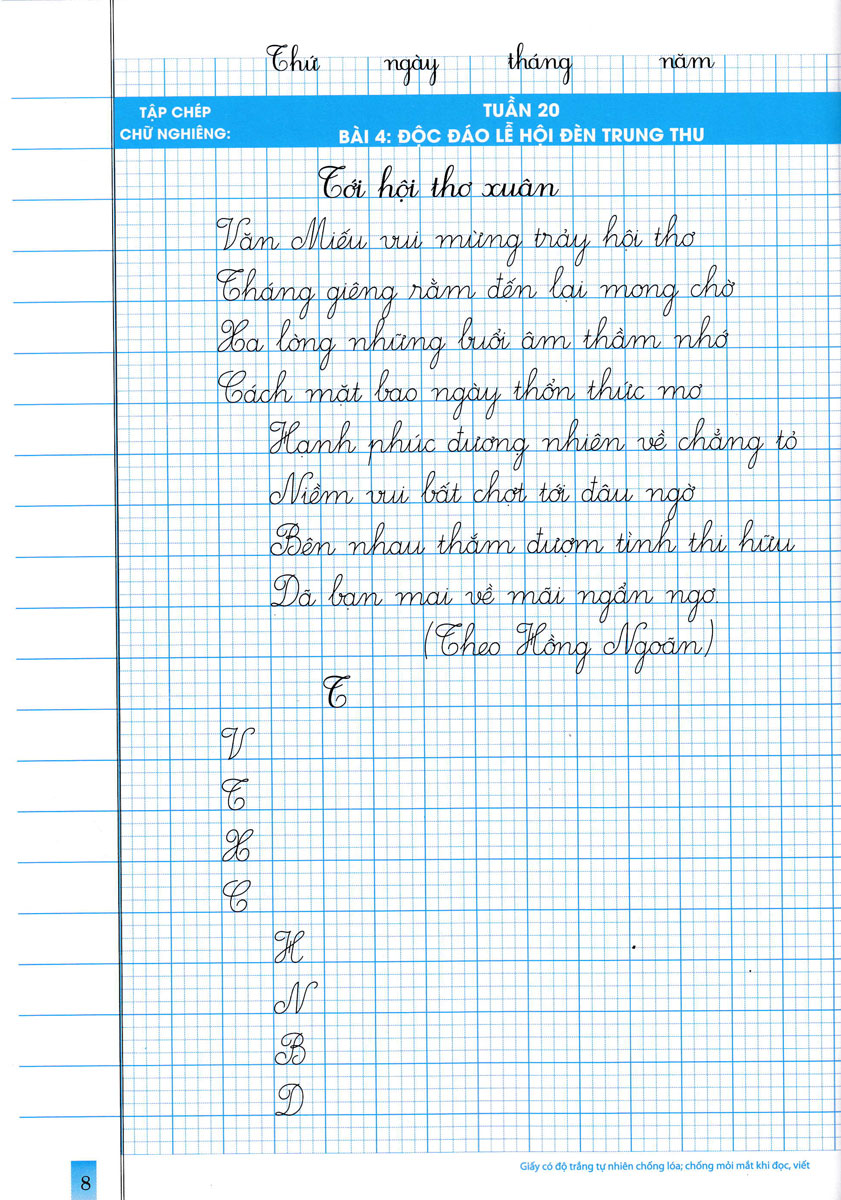 Thứ ngày tháng năm
TẬP CHÉP
CHỮ NGHIÊNG:
TUẦN 20
BÀI 4: ĐỘC ĐÁO LỄ HỘI ĐÈN TRUNG THU
Tới hội thơ xuân
Văn Miếu vui mừng trảy hội thơ
Tháng giêng rằm đến lại mong chờ
Xa lòng những buổi âm thầm nhớ
Cách mặt bao ngày thổn thức mơ
Hạnh phúc đương nhiên về chẳng tỏ
Niềm vui bất chợt tới đâu ngờ
Bên nhau thắm đượm tình thi hữu
Dã bạn mai về mãi ngẩn ngơ.
(Theo Hồng Ngoãn)
T
V
T
X
C
H
N
B
D
Giấy có độ trắng tự nhiên chống lóa; chống mỏi mắt khi đọc, viết
8